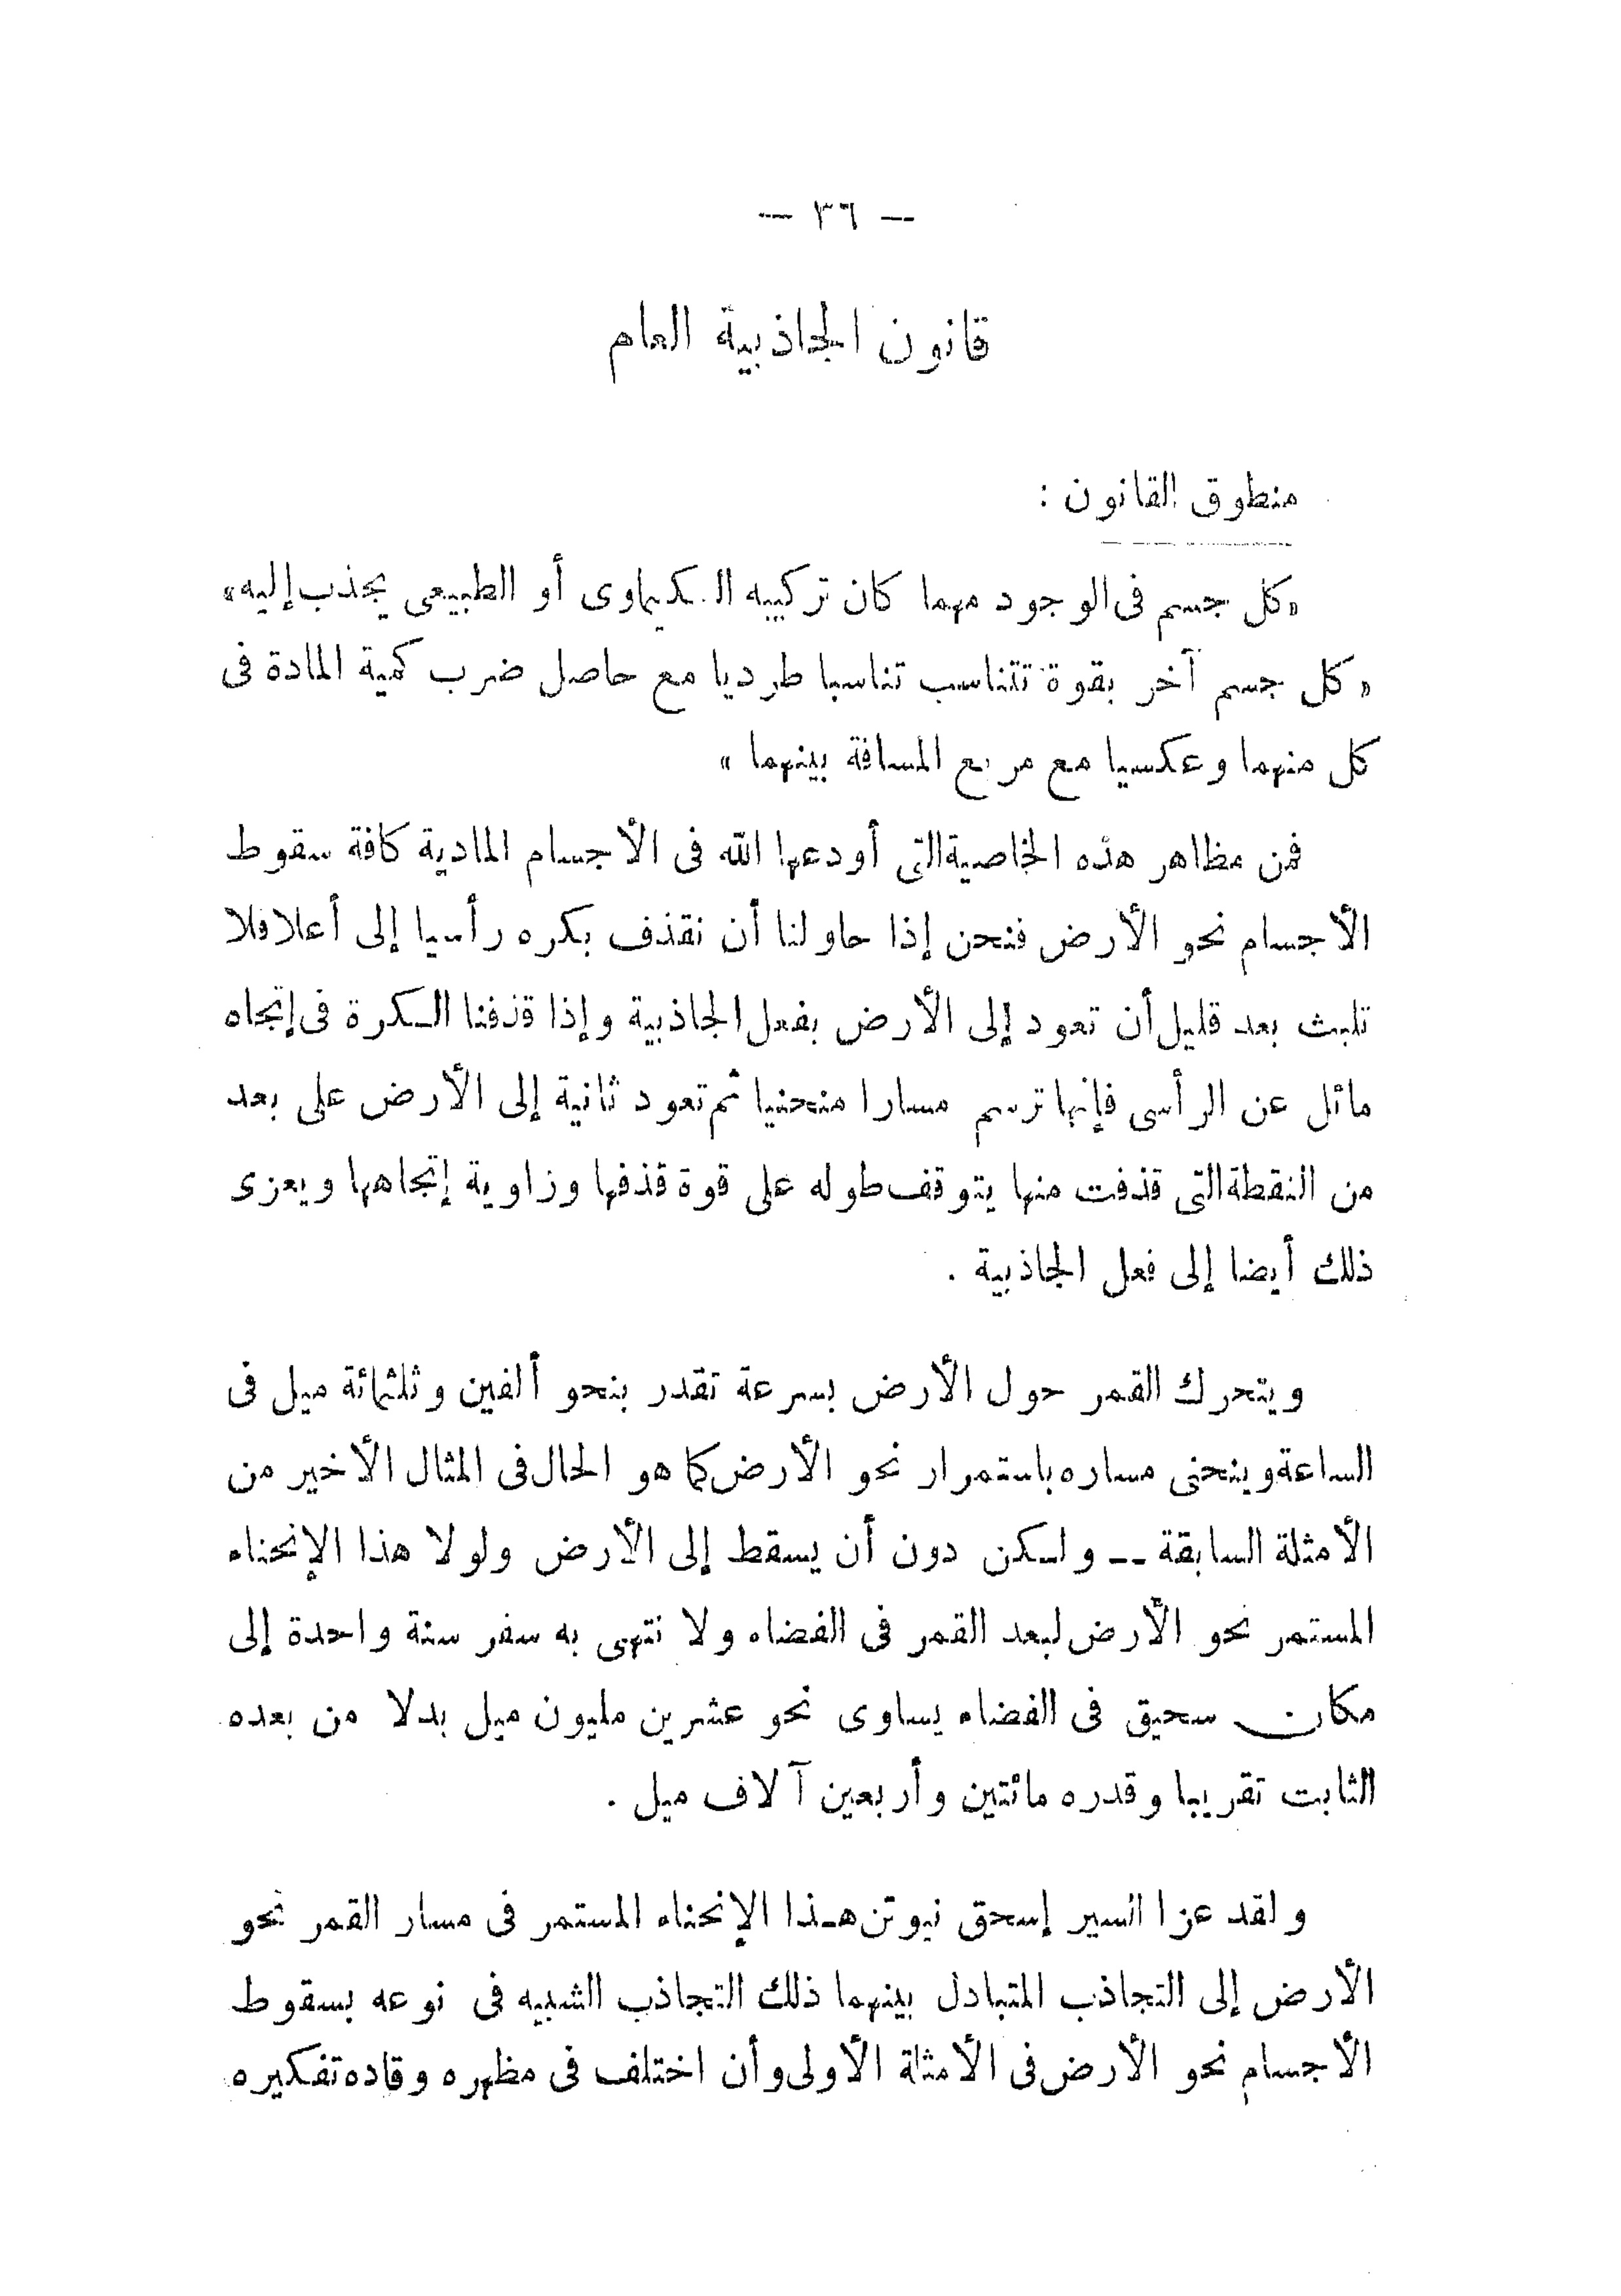 — ٣٦ —
قانون الجاذبية العام
منطوق القانون :
«كل جسم فى الوجود مهما كان تركيبه الكيماوى أو الطبيعى يجذب إليه»
«كل جسم آخر بقوة تتناسب تناسبا طرديا مع حاصل ضرب كمية المادة فى
كل منهما وعكسيا مع مربع المسافة بينهما »
فمن مظاهر هذه الخاصية التى أودعها الله فى الأجسام المادية كافة سقوط
الأجسام نحو الأرض فنحن إذا حاولنا أن نقذف بكره رأسيا إلى أعلا فلا
تلبث بعد قليل أن تعود إلى الأرض بفعل الجاذبية وإذا قذفنا الكرة فى إتجاه
مائل عن الرأسى فإنها ترسم مسارا منحنيا ثم تعود ثانية إلى الأرض على بعد
من النقطة التى قذفت منها يتوقف طوله على قوة قذفها وزاوية إتجاهها ويعزى
ذلك أيضا إلى فعل الجاذبية .
ويتحرك القمر حول الأرض بسرعة تقدر بنحو ألفين وثلثمائة ميل فى
الساعة وينحنى مساره باستمرار نحو الأرض كما هو الحال فى المثال الأخير من
الأمثلة السابقة -- ولكن دون أن يسقط إلى الأرض ولولا هذا الإنحناء
المستمر نحو الأرض لبعد القمر فى الفضاء ولا نتهى به سفر سنة واحدة إلى
مكان سحيق فى الفضاء يساوى نحو عشرين مليون ميل بدلا من بعده
الثابت تقريبا وقدره مائتين وأربعين آلاف ميل .
ولقد عزا السير إسحق نيوتن هذا الإنحناء المستمر فى مسار القمر نحو
الأرض إلى التجاذب المتبادل بينهما ذلك التجاذب الشبيه فى نوعه بسقوط
الأجسام نحو الأرض فى الأمثلة الأولى وأن اختلف فى مظهره وقاده تفكيره